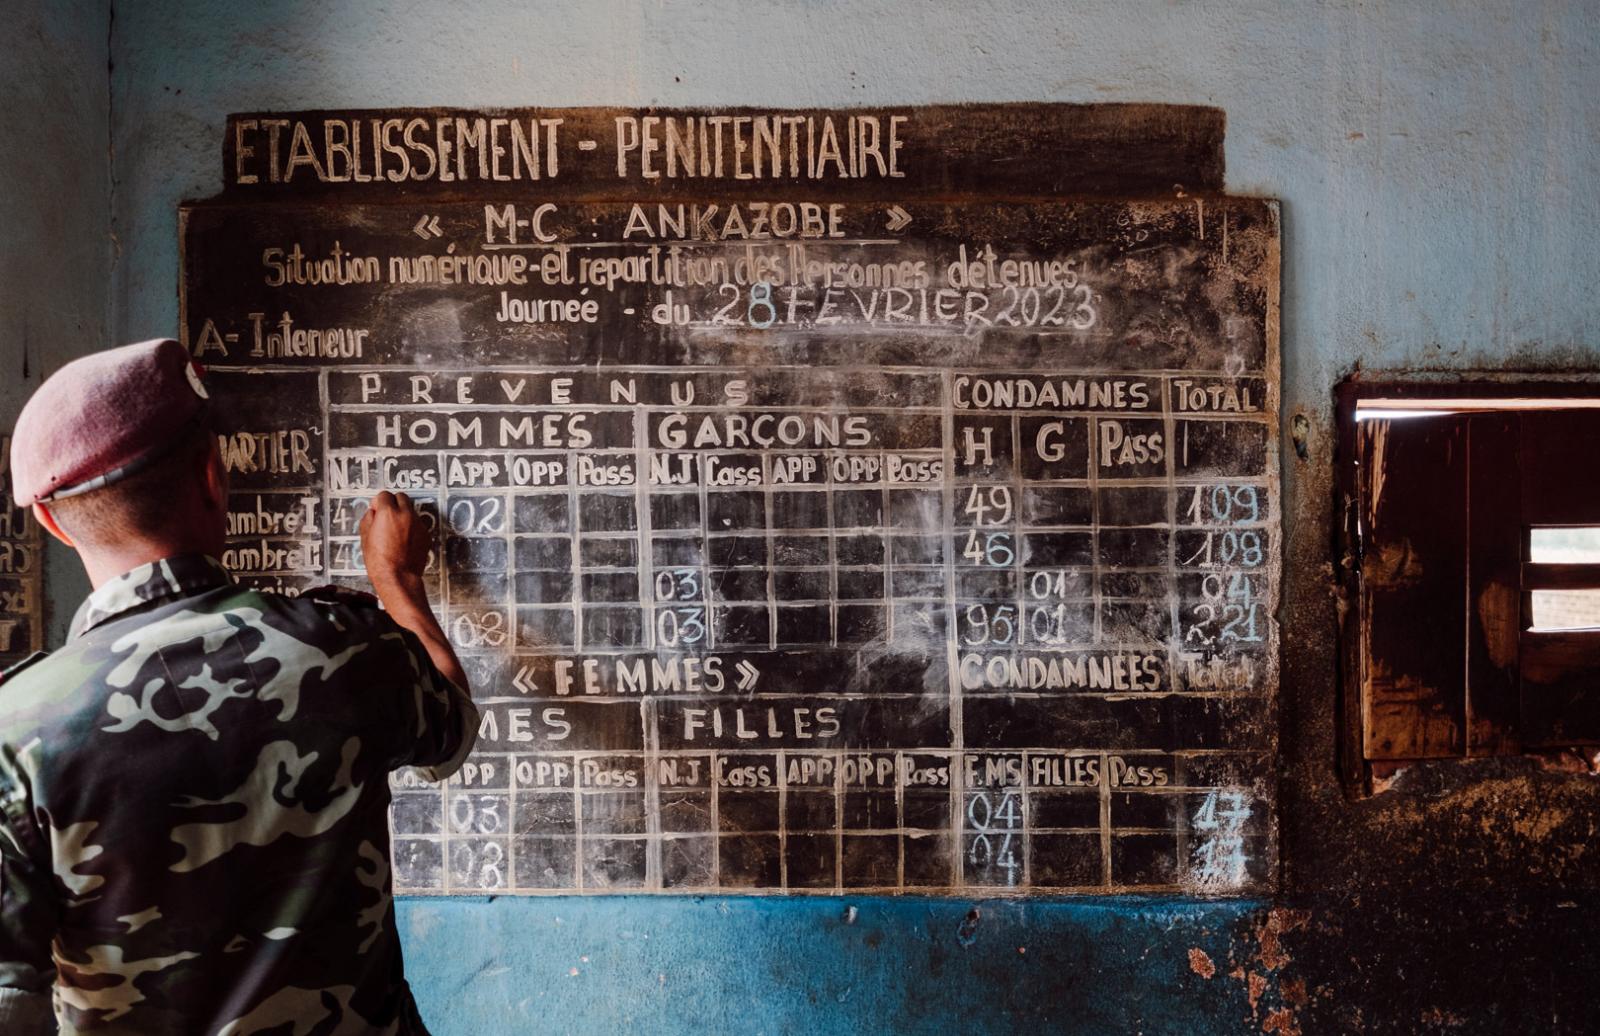 ETABLISSEMENT - PENITENTIAIRE
« M-C : ANKAZOBE »
Situation numérique - et repartition des Personnes détenues
Journée - du 28 FEVRIER 2023
A - Interieur
PREVENUS CONDAMNES TOTAL
HOMMES GARÇONS H G PASS
ARTIER N.J Cass APP OPP Pass N.J Cass APP OPP Pass
ambre I 02 49 109
ambre II 46 108
03 01 04
02 03 95 01 221
« FEMMES » CONDAMNÉES Total
MES FILLES
Cass APP OPP Pass N.J Cass APP OPP Pass F.MS FILLES PASS
03 04 17
03 04 17